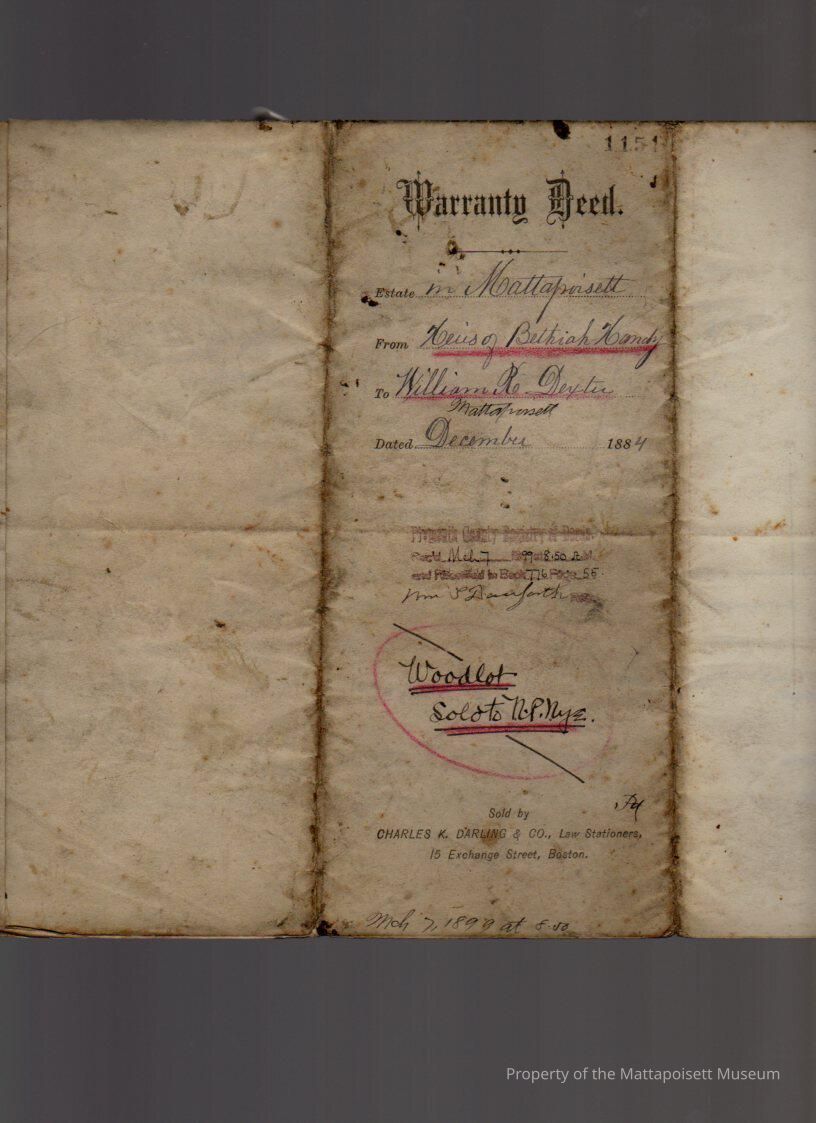 1151
Warranty Deed.
Estate in Mattapoisett
From Heirs of Bethiah Handy
To William R. Dexter
Mattapoisett
Dated December 1884
Plymouth County Registry of Deeds.
Rec'd Mch 7 1899 at 8.50 A.M.
and Recorded in Book 776 Page 55
Wm S Danforth
Woodlot
Sold to N.P. Nye.
Sold by
CHARLES K. DARLING & CO., Law Stationers,
15 Exchange Street, Boston.
Mch 7, 1899 at 8.50
Property of the Mattapoisett Museum